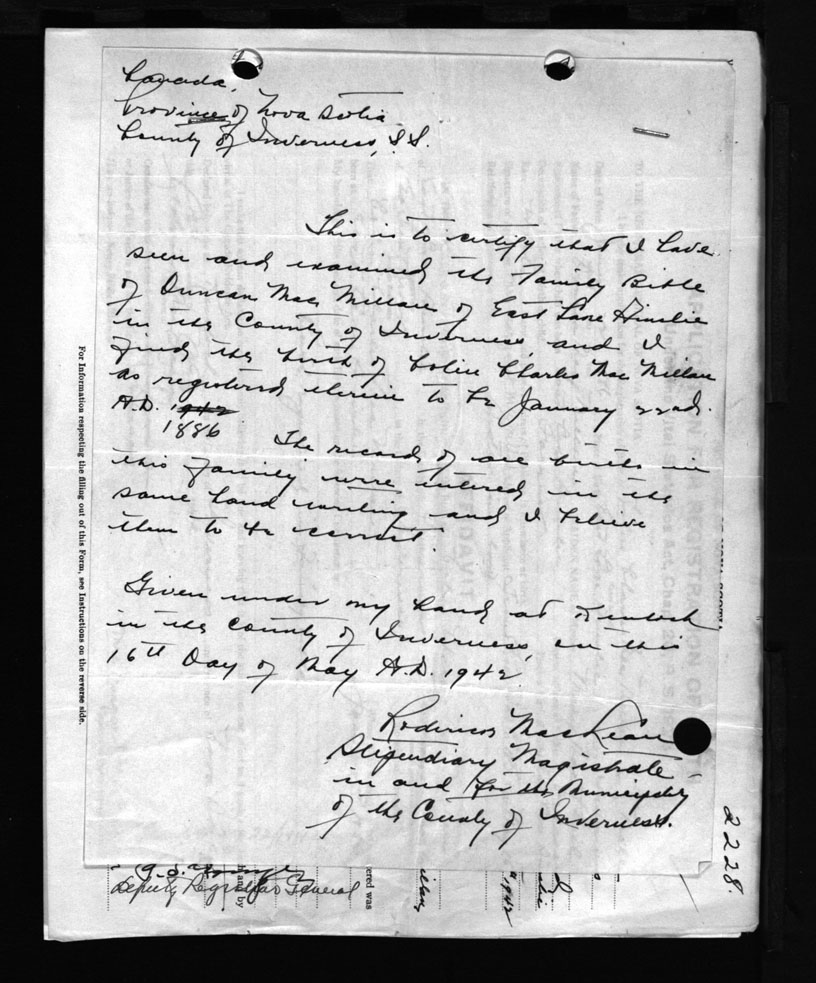 Canada,
Province of Nova Scotia
County of Inverness, S.S.
This is to certify that I have
seen and examined the Family Bible
of Duncan MacMillan of East Lake Ainslie
in the County of Inverness, and I
find the birth of Colin Charles MacMillan
as registered therein to be January 22nd.
A.D. 1942
1886
The records of all births in
this family were entered in the
same hand writing and I believe
them to be correct.
Given under my hand at Kinloch
in the County of Inverness, on this
16th Day of May A.D. 1942
Roderick MacLean
Stipendiary Magistrate
in and for the Municipality
of the County of Inverness.
2228.
For Information respecting the filling out of this Form, see Instructions on the reverse side.
Deputy Registrar General
ered was
h and by
1942